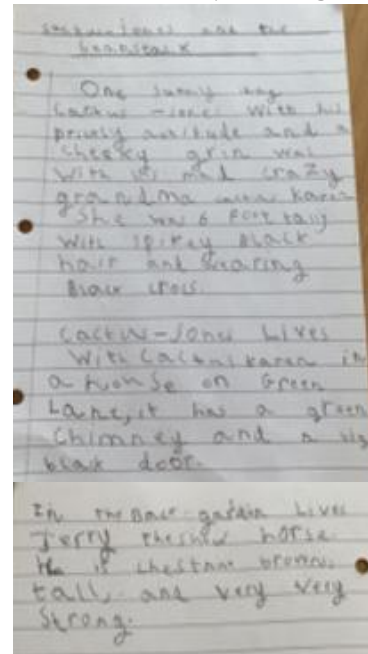 and the
One sunny day
Cactus-Jones with his
prickly attitude and a
cheeky grin was
with his mad crazy
grandma cactus Karen
She was 6 foot tall
with spikey Black
hair and wearing
Black crocs.
Cactus-Jones Lives
With Cactus Karen in
a house on Green
Lane, it has a green
Chimney and a big
black door.
In the Back gardain Lives
Jerry the horse
He is chestnut brown,
tall and very very
Strong.